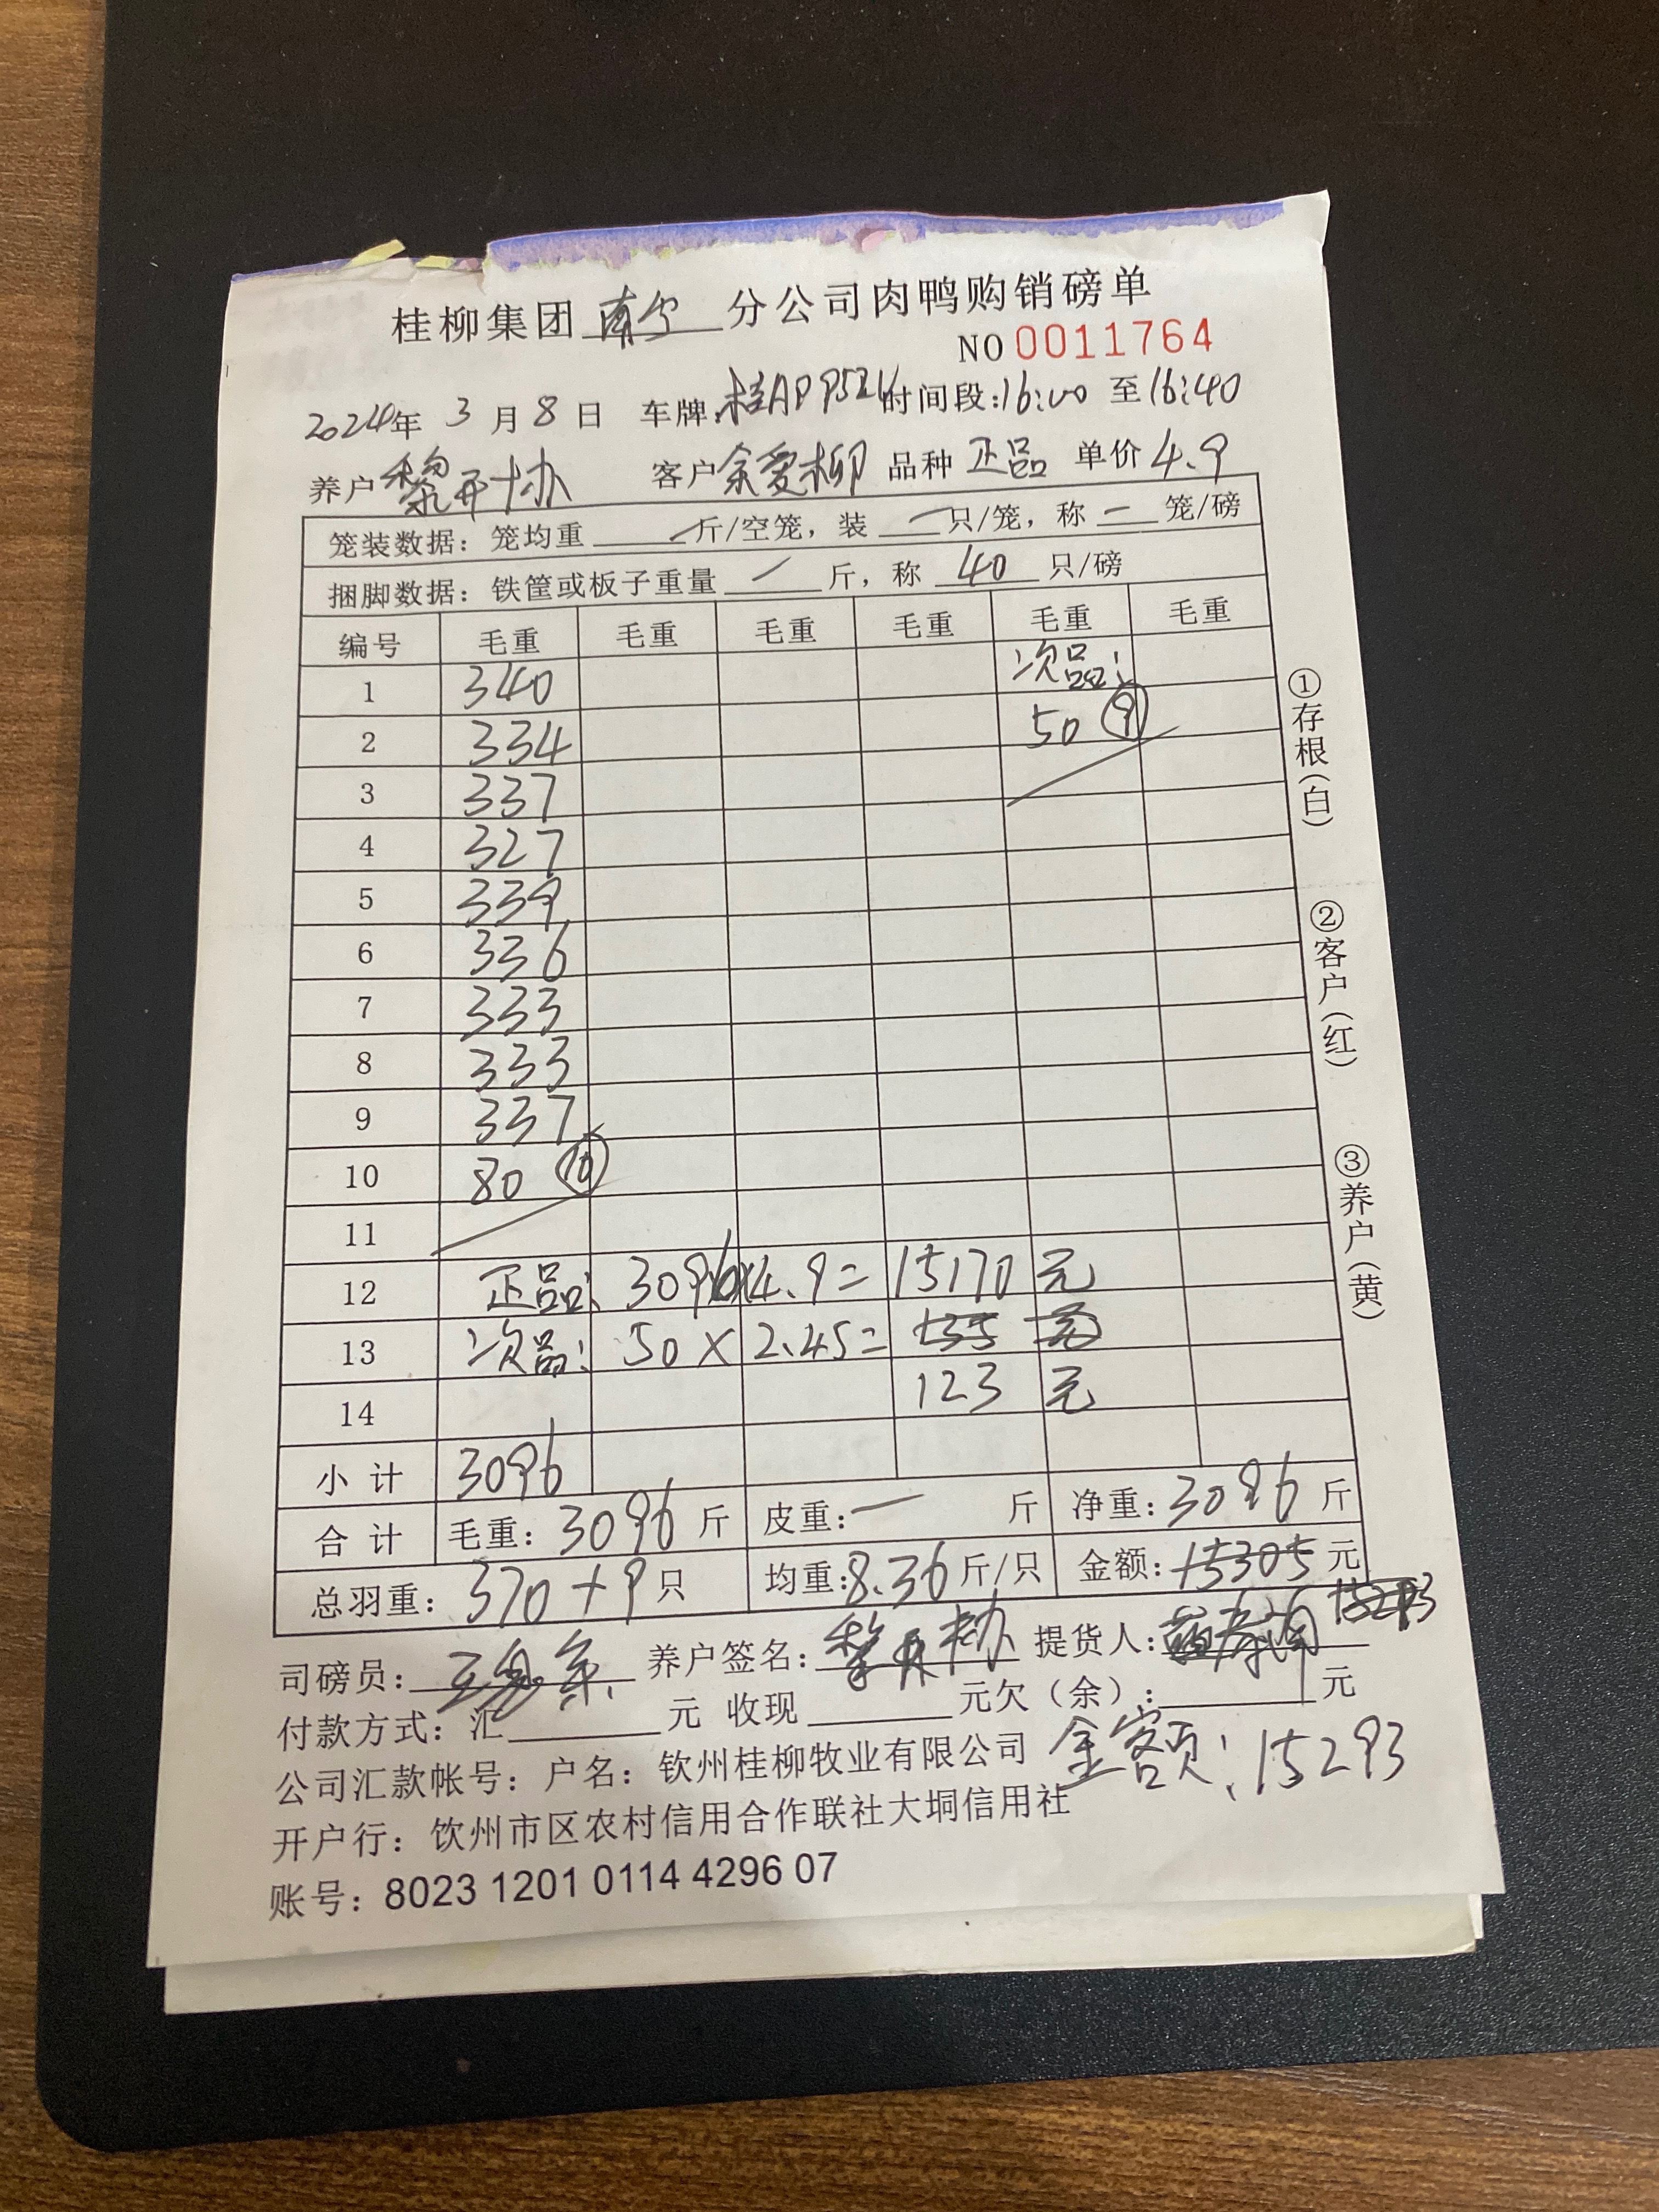 桂柳集团南宁分公司肉鸭购销磅单
NO 0011764
2024年 3 月 8 日 车牌:桂AP952 时间段:16:00 至16:40
养户 黎开协 客户 余爱柳 品种 正品 单价 4.9
笼装数据: 笼均重 — 斤/空笼, 装 — 只/笼, 称 — 笼/磅
捆脚数据: 铁筐或板子重量 / 斤, 称 40 只/磅
编号 毛重 毛重 毛重 毛重 毛重 毛重
1 340 次品:
2 334 50 ⑨
3 337
4 327
5 339
6 336
7 333
8 333
9 337
10 80 ⑩
11
12 正品: 3096×4.9= 15170 元
13 次品: 50 × 2.45= 135 元
14 123 元
小 计 3096
合 计 毛重: 3096 斤 皮重: — 斤 净重: 3096 斤
总羽重: 370+9 只 均重:8.36 斤/只 金额: 15305 元
15293
司磅员: 养户签名: 黎开协 提货人:
付款方式: 汇 元 收现 元欠(余): 元
公司汇款帐号: 户名: 钦州桂柳牧业有限公司 金额: 15293
开户行: 钦州市区农村信用合作联社大垌信用社
账号: 8023 1201 0114 4296 07
①存根(白)
②客户(红)
③养户(黄)